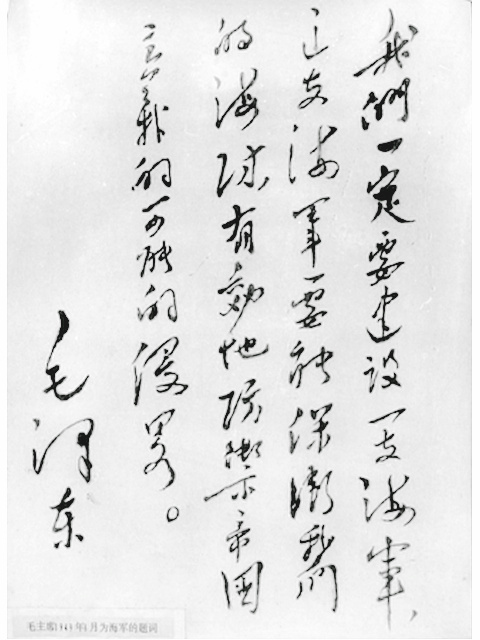 我們一定要建设一支海軍,
这支海軍要能保衛我們
的海防有効地防禦帝国
主義的可能的侵畧。
毛泽东
毛主席1949年1月为海军的题词